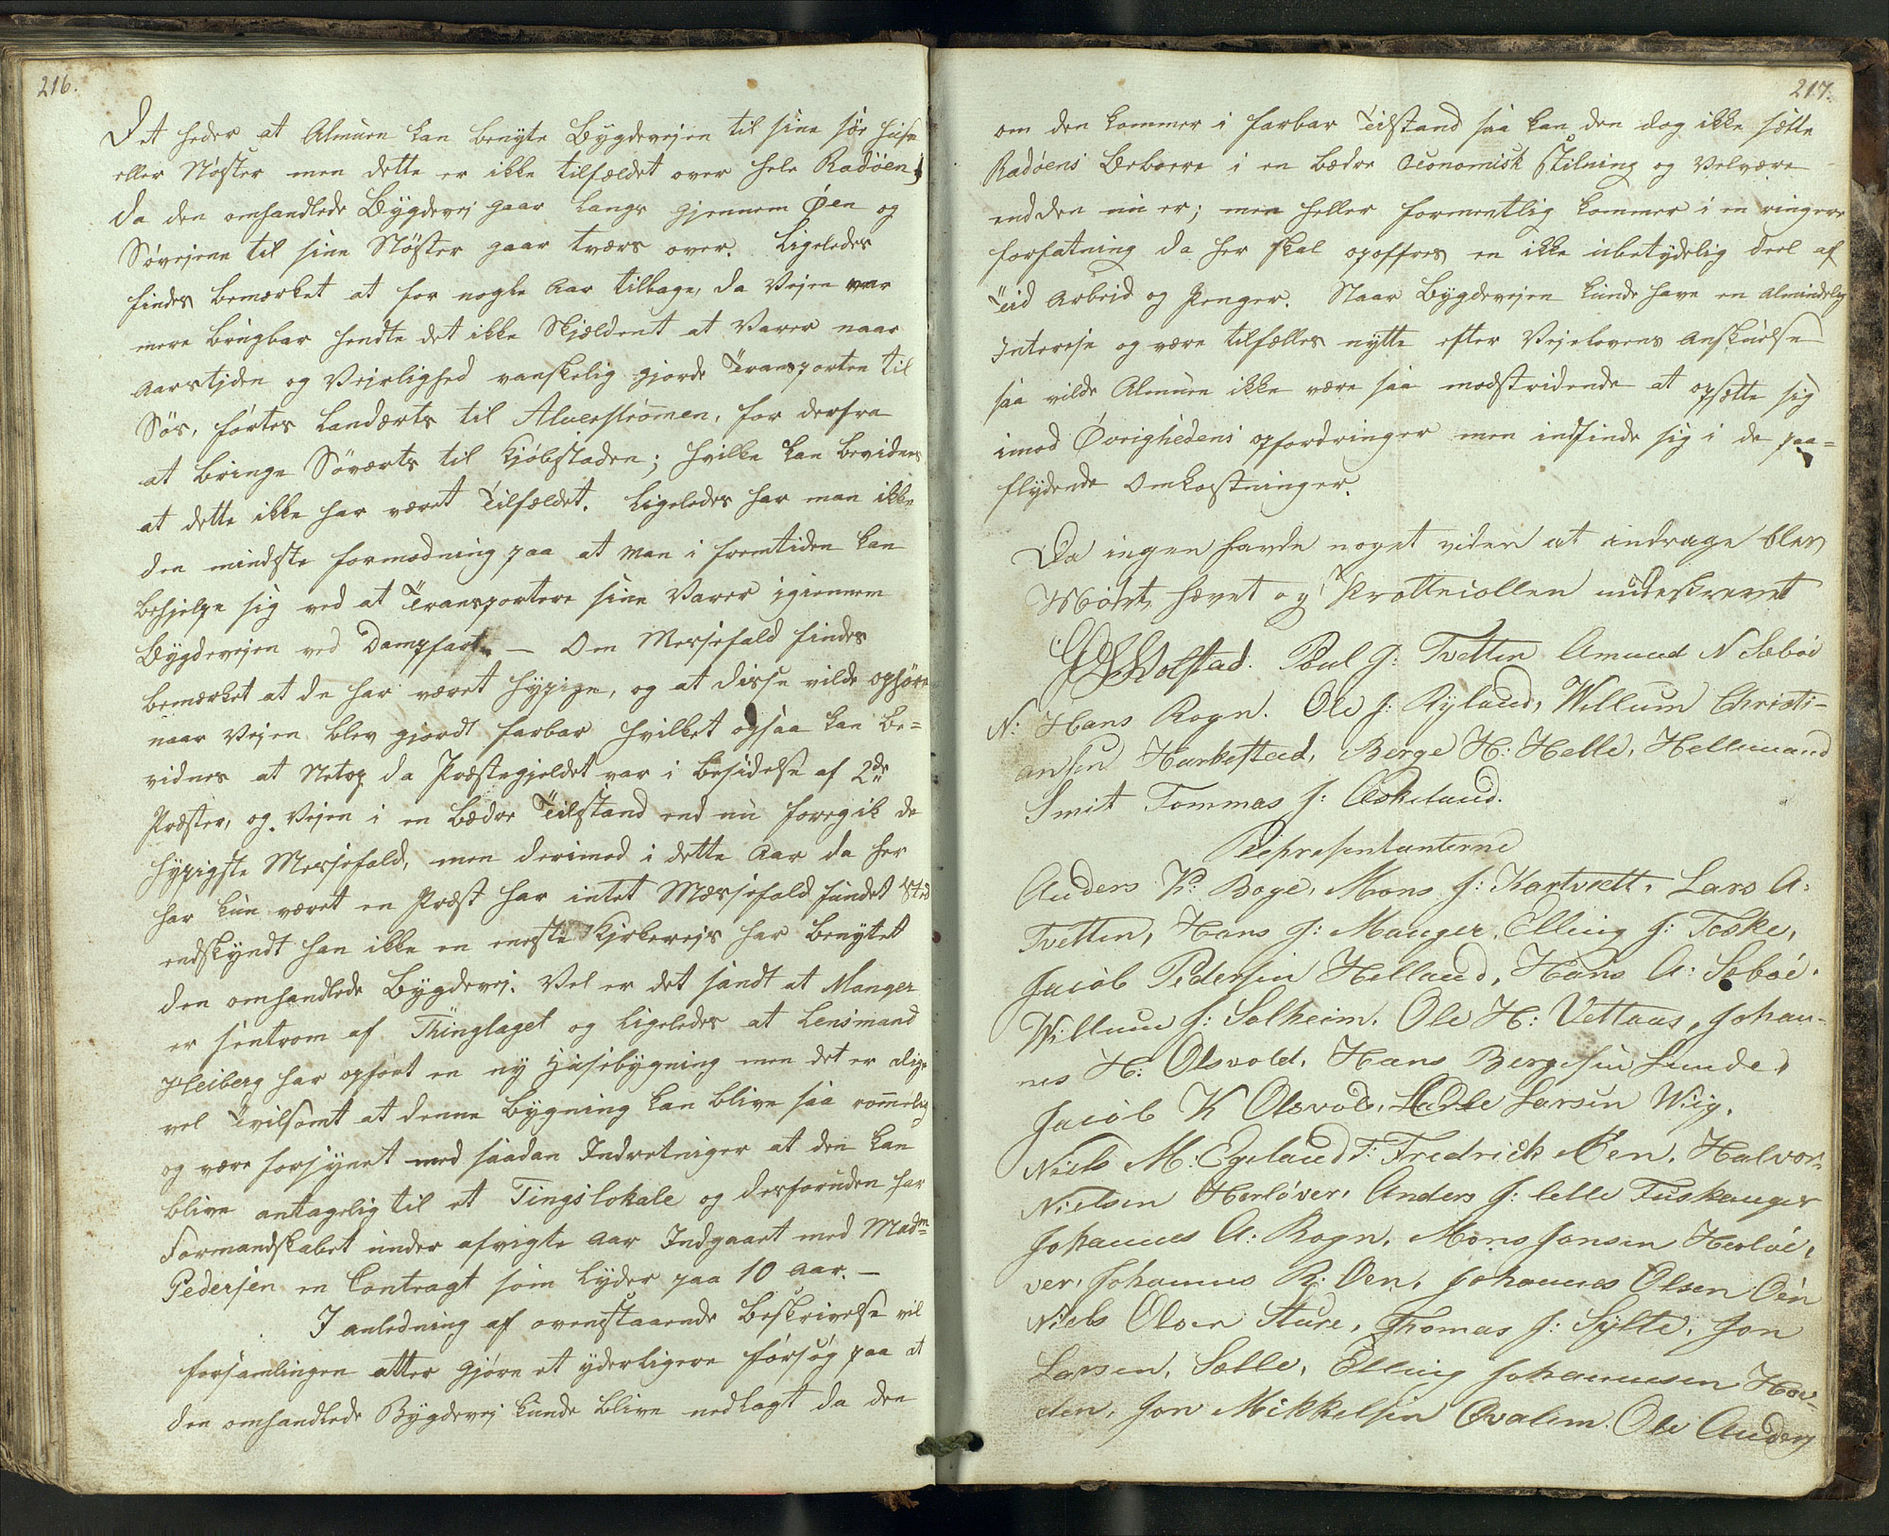 216.
Det heder at Almuen kan benyte Bygdevejen til sine sör huse
eller Nöster men dette er ikke tilfældet over hele Radöen,
da den omhandlede Bygdevej gaar langs gjennem Öen og
Sövejene til sine Nöster gaar tværs over. Ligeledes
findes bemærket at for nogle Aar tilbage, da Vejen var
mere brugbar hendte det ikke Skjældent at Varer naar
aarstiden og Vejrlighed vanskelig gjorde Transporten til
Sös, förtes Landværts til Alverströmen, for derfra
at bringe Söværts til Kjöbstaden; hvilke kan bevidnes
at dette ikke har været Tilfældet. Ligeledes har man ikke
den mindste formodning paa at man i fremtiden kan
behjelpe sig ved at Transportere sine Varer igiennem
Bygdevejen ved Dampfart. — Om Messefald findes
bemærket at de har været hypige, og at disse vilde ophöre
naar Vejen blev gjordt farbar hvilket ogsaa kan be=
vidnes at Netop da Præstegjeldet var i besidelse af 2de
Præster, og Vejen i en bædre Tilstand end nu foregik de
hypigste Messefald, men derimod i dette Aar da her
har kun været en Præst har intet Mæssefald fundet Sted
endskyndt han ikke en eneste Kjrkerejs har benytet
den omhandlede Bygdevej. Vel er det sandt at Manger
er sentrom af Thinglaget og ligeledes at Lensmand
Heiberg har opfört en ny Husebygning men det er alige
vel Tvilsomt at denne bygning kan blive saa romelig
og være forsynet med saadan Indretninger at den kan
blive antagelig til et Tingslokale og desforuden har
Formandskabet under afvigte Aar Indgaaet med Madm
Pedersen en Contragt som lyder paa 10 Aar. —
I anledning af ovenstaaende beskrivelse vil
forsamlingen atter gjöre et yderligere forsög paa at
den omhandlede Bygdevej kunde blive nedlagt da den
217.
om den kommer i farbar Tilstand saa kan den dog ikke sætte
Radöens Beboere i en bædre Oconomisk Stilning og Velvære
end den nu er; men heller formentlig kommer i en ringere
forfatning da her skal opoffres en ikke ubetydelig deel af
Tid Arbeid og Penger. Naar Bygdevejen kunde have en Almindelig
Interese og være tilfælles nytte efter Vejelovens Anskuelse
saa vilde Almuen ikke være saa modstridende at opsætte sig
imod Övrighedens opfordringer men indfinde sig i de paa=
flydende Omkostninger.
Da ingen havde noget viden at andrage blev
Mödet hævet og Prottocollen underskrevet
Wolstad. Poul J: Tvetten Amund N Sæböe
N: Hans Rogn. Ole J: Ryland, Willum Christi-
ansen Harkestad, Berge H: Helle, Hellemand
Smit Tommas J: Askeland.
Representanterne
Anders K: Boge, Mons J: Kartveitt, Lars A:
Tvetten, Hans J: Manger, Elling J: Toske,
Jacob Pedersen Helland, Hans A: Sæböe.
Willum J: Solheim. Ole H: Vettaas, Johan-
nes H: Olsvold, Hans Bergesen Lunde,
Jacob K Olsvold, Larsen Wiig.
Niels M: Egeland F: Fredrick Öen, Halvor
Nielsen Herlöver, Anders J: lille Fuskanger
Johannes A: Rogn, Mons Jonsen Herlöe,
ver, Johannes R: Oen, Johannes Olsen Oen
Niels Olsen Sture, Thomas J: Sylte, Jon
Larsen, Sælle, Elling Johannesen Hov-
den, Jon Mikkelsen Qvalem. Ole Anders